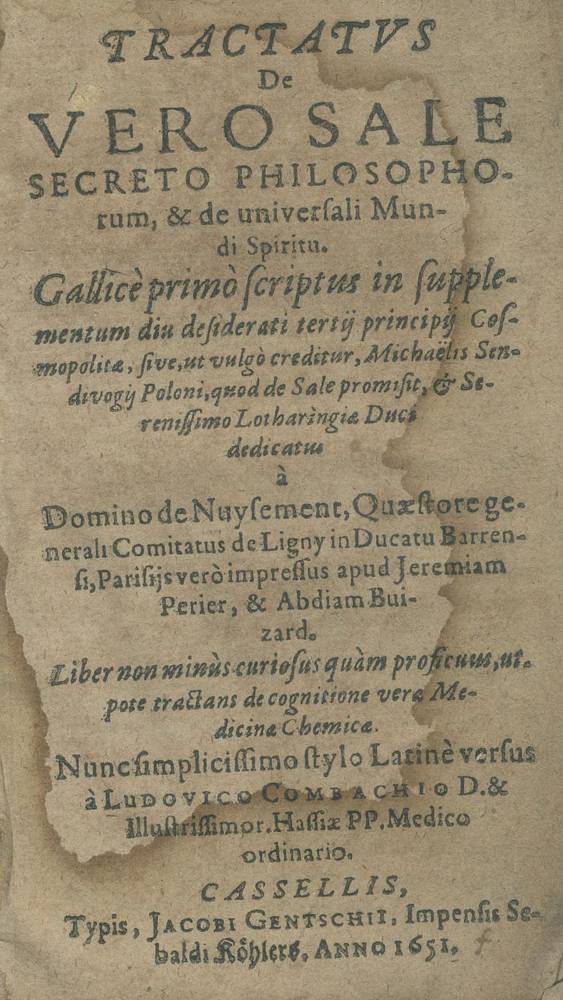 TRACTATVS
De
VERO SALE
SECRETO PHILOSOPHO-
rum, & de universali Mun-
di Spiritu.
Gallicè primò ſcriptus in ſupple-
mentum diu deſiderati tertij principij Coſ-
mopolitæ, ſive, ut vulgò creditur, Michaëlis Sen-
divogij Poloni, quod de Sale promiſit, & Se-
reniſſimo Lotharingiæ Duci
dedicatus
à
Domino de Nuyſement, Quæſtore ge-
nerali Comitatus de Ligny in Ducatu Barren-
ſi, Pariſijs verò impreſſus apud Jeremiam
Perier, & Abdiam Bui-
zard.
Liber non minùs curioſus quàm proficuus, ut-
pote tractans de cognitione veræ Me-
dicinæ Chemicæ.
Nunc ſimpliciſſimo ſtylo Latinè verſus
à LUDOVICO COMBACHIO D. &
Illuſtriſſimor. Haſſiæ PP. Medico
ordinario.
CASSELLIS,
Typis, JACOBI GENTSCHII, Impenſis Se-
baldi Köhlers, ANNO 1651.